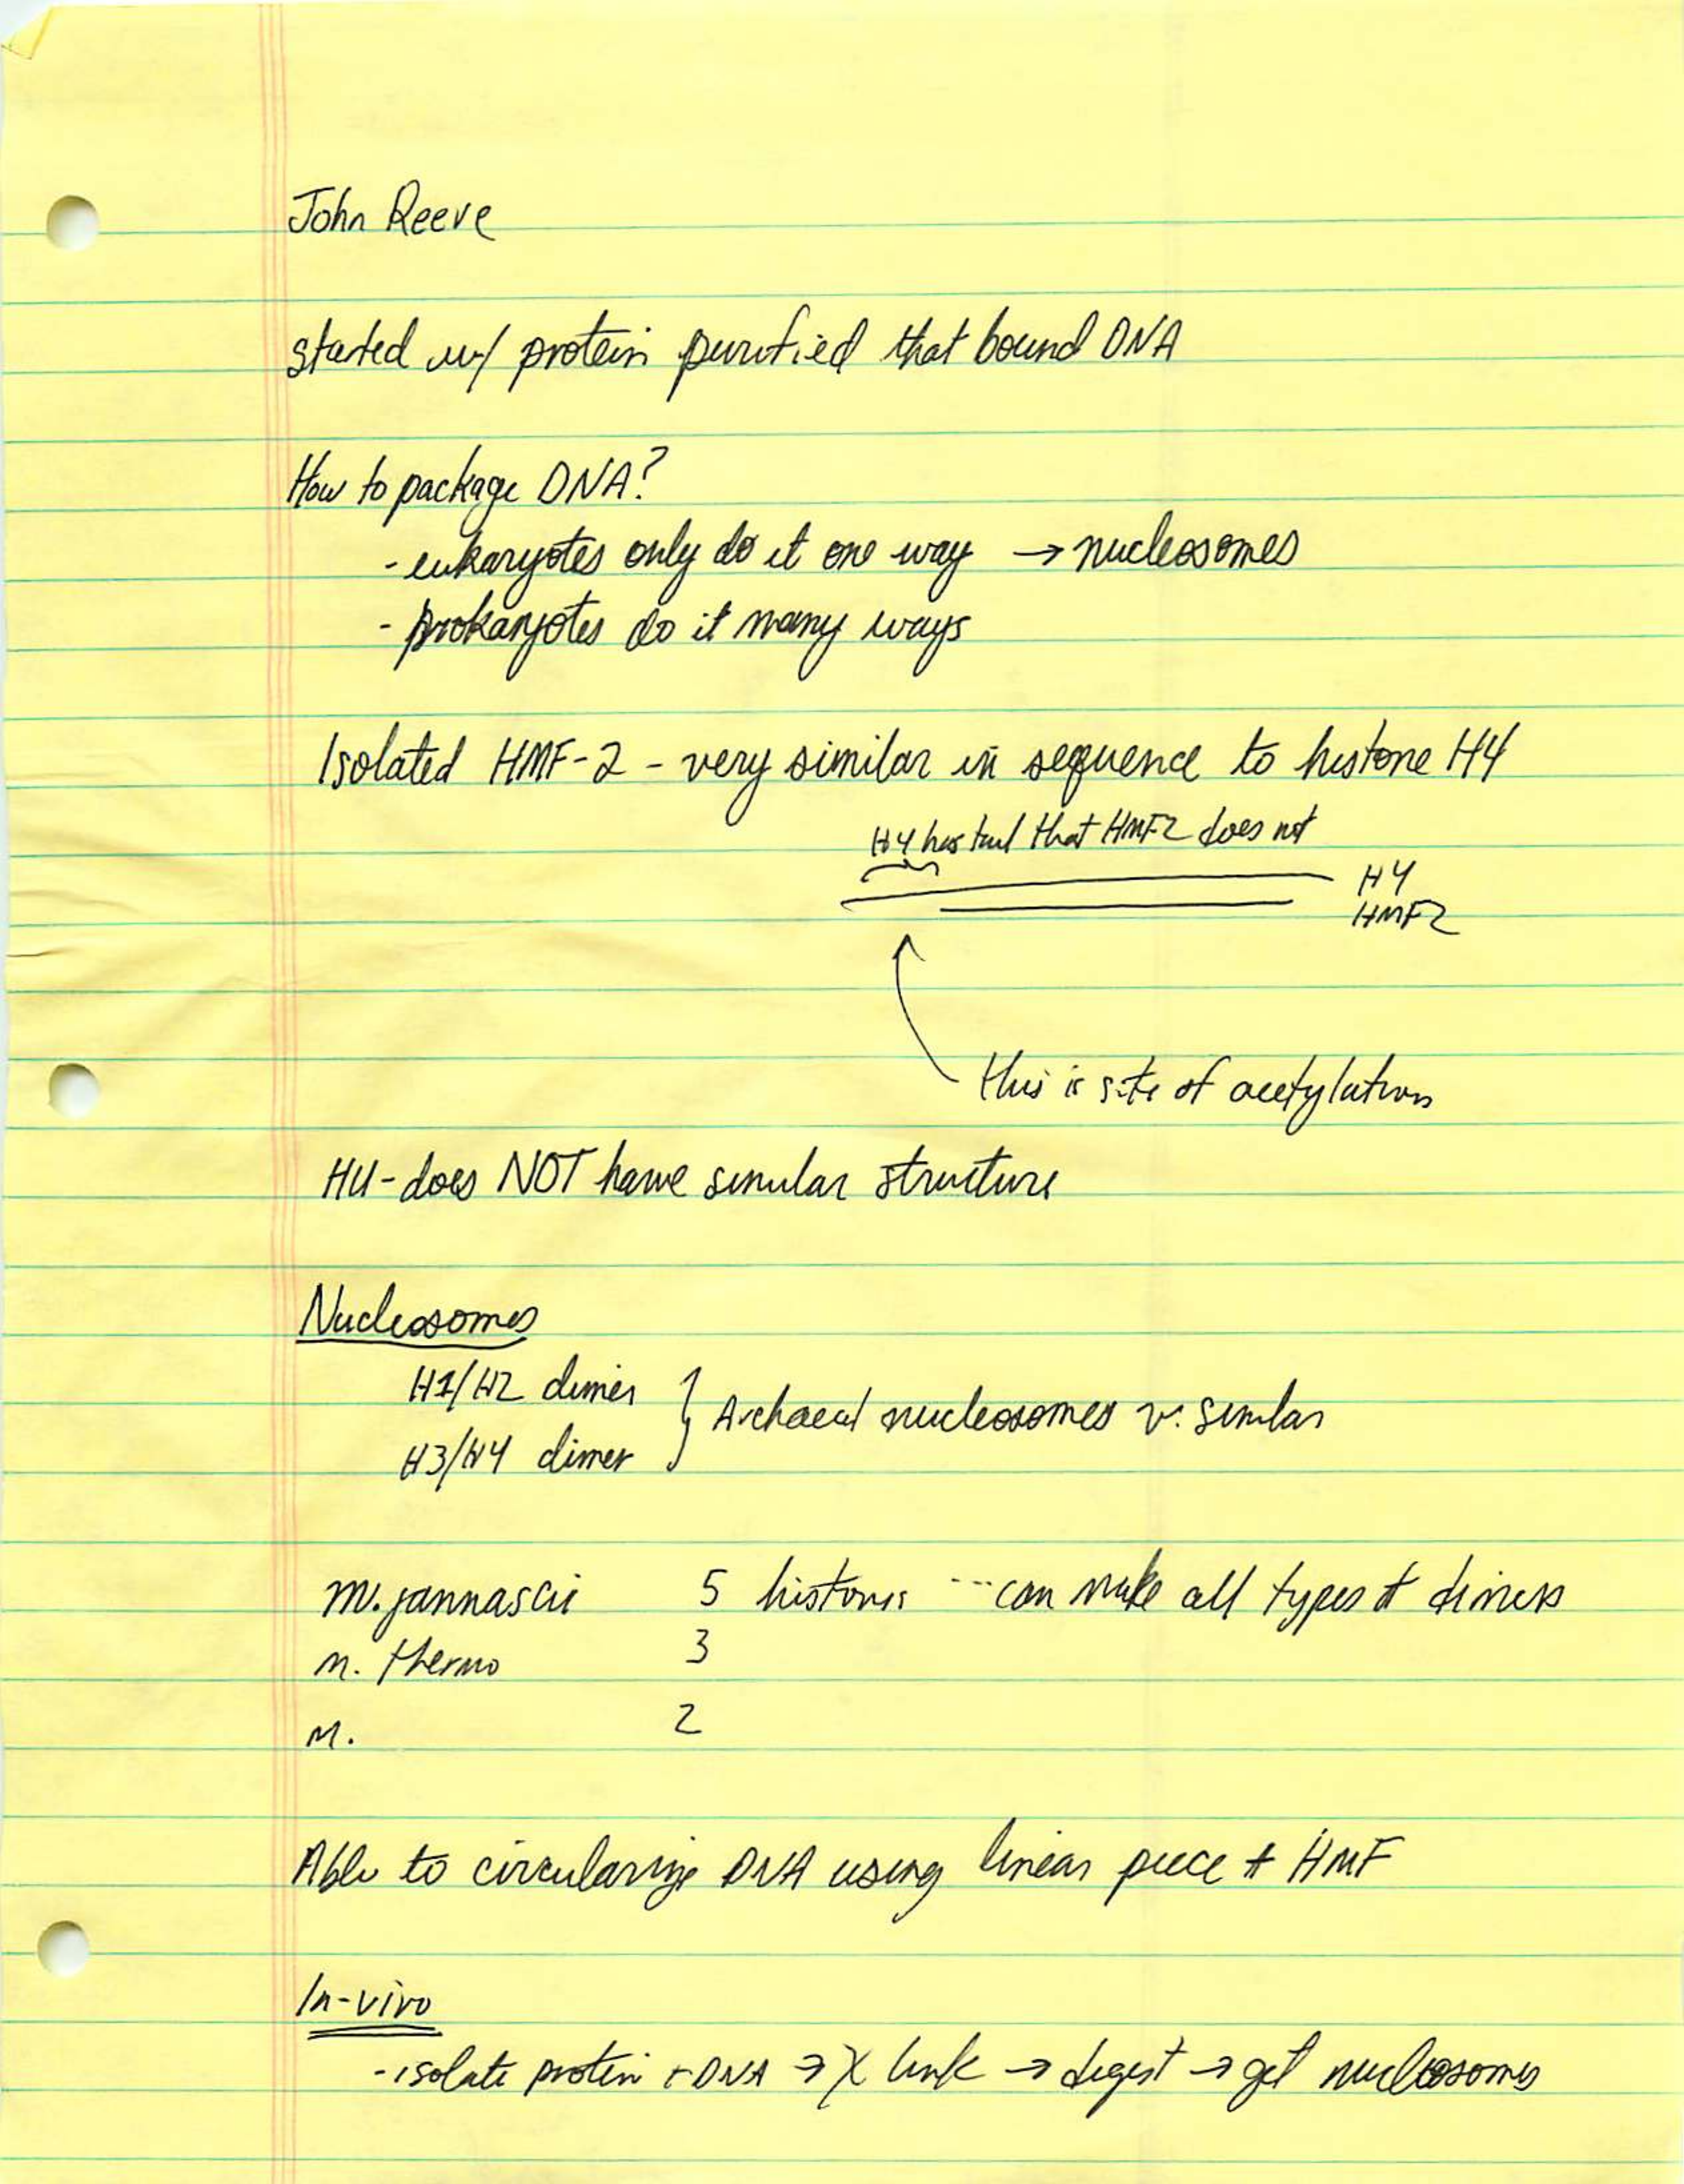 John Reeve
started w/ protein purified that bound DNA
How to package DNA?
- eukaryotes only do it one way → nucleosomes
- prokaryotes do it many ways
Isolated HMF-2 - very similar in sequence to histone H4
H4 has tail that HMF2 does not
H4
HMF2
this is site of acetylation
HU - does NOT have similar structure
Nucleosomes
H1/H2 dimer
H3/H4 dimer
} Archaeal nucleosomes v. similar
M. jannascii 5 histones ... can make all types of dimers
M. thermo 3
M. 2
Able to circularize DNA using linear piece + HMF
In-vivo
- isolate protein + DNA → X link → digest → get nucleosomes